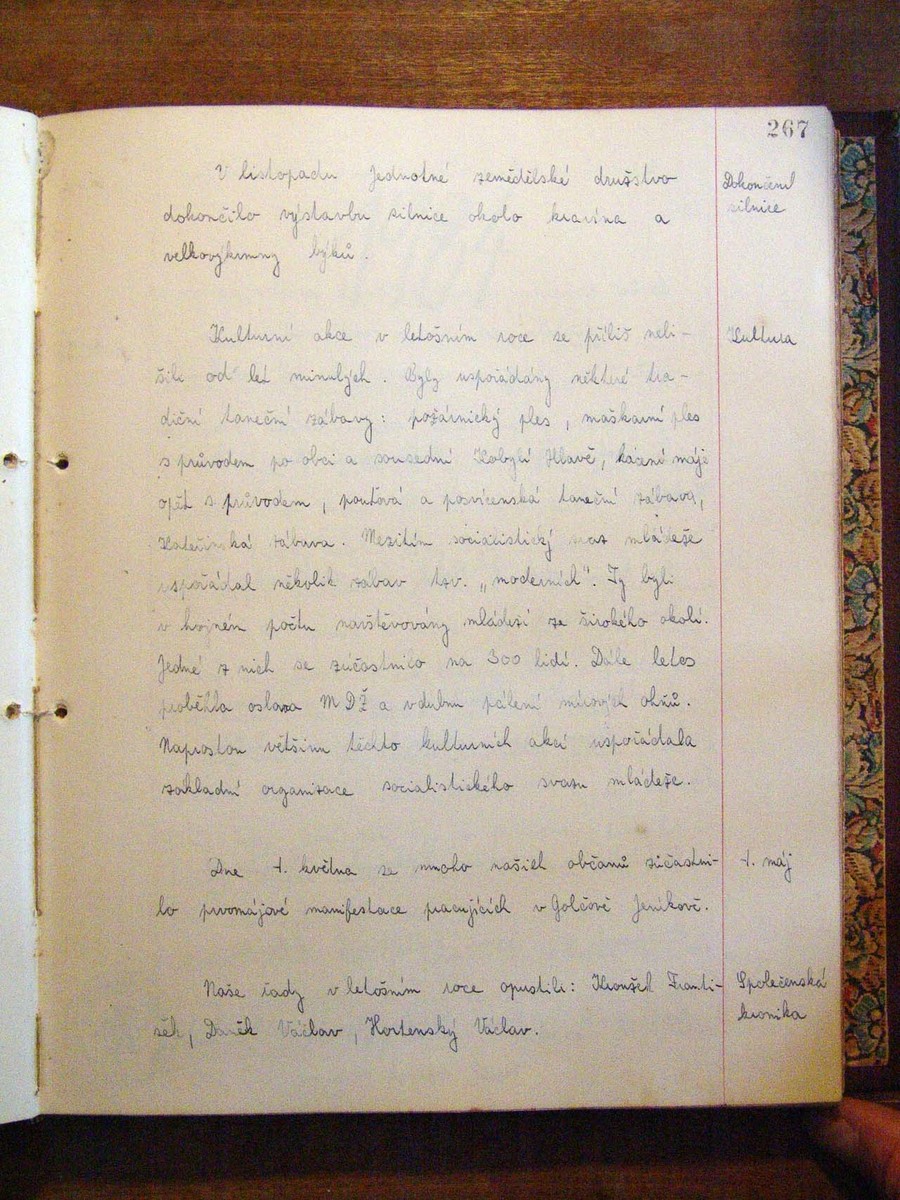 267
V listopadu Jednotné zemědělské družstvo
Dokončení
silnice
dokončilo výstavbu silnice okolo kravína a
velkovýkrmny býků.
Kulturní akce v letošním roce se příliš neli-
Kultura
šili od let minulých. Byly uspořádány některé tra-
diční taneční zábavy: požárnický ples, maškarní ples
s průvodem po obci a sousední Kobylí Hlavě, kácení máje
opět s průvodem, pouťová a posvícenská taneční zábava,
Kateřinská zábava. Mezitím socialistický svaz mládeže
uspořádal několik zábav tzv. „moderních". Ty byli
v hojném počtu navštěvovány mládeží ze širokého okolí.
Jedné z nich se zúčastnilo na 300 lidí. Dále letos
proběhla oslava MDŽ a v dubnu pálení mírových ohňů.
Naprostou většinu těchto kulturních akcí uspořádala
základní organizace socialistického svazu mládeže.
Dne 1. května se mnoho našich občanů zúčastni-
1. máj
lo prvomájové manifestace pracujících v Golčově Jeníkově.
Naše řady v letošním roce opustili: Kroužek Franti-
Společenská
kronika
šek, Daněk Václav, Hortenský Václav.